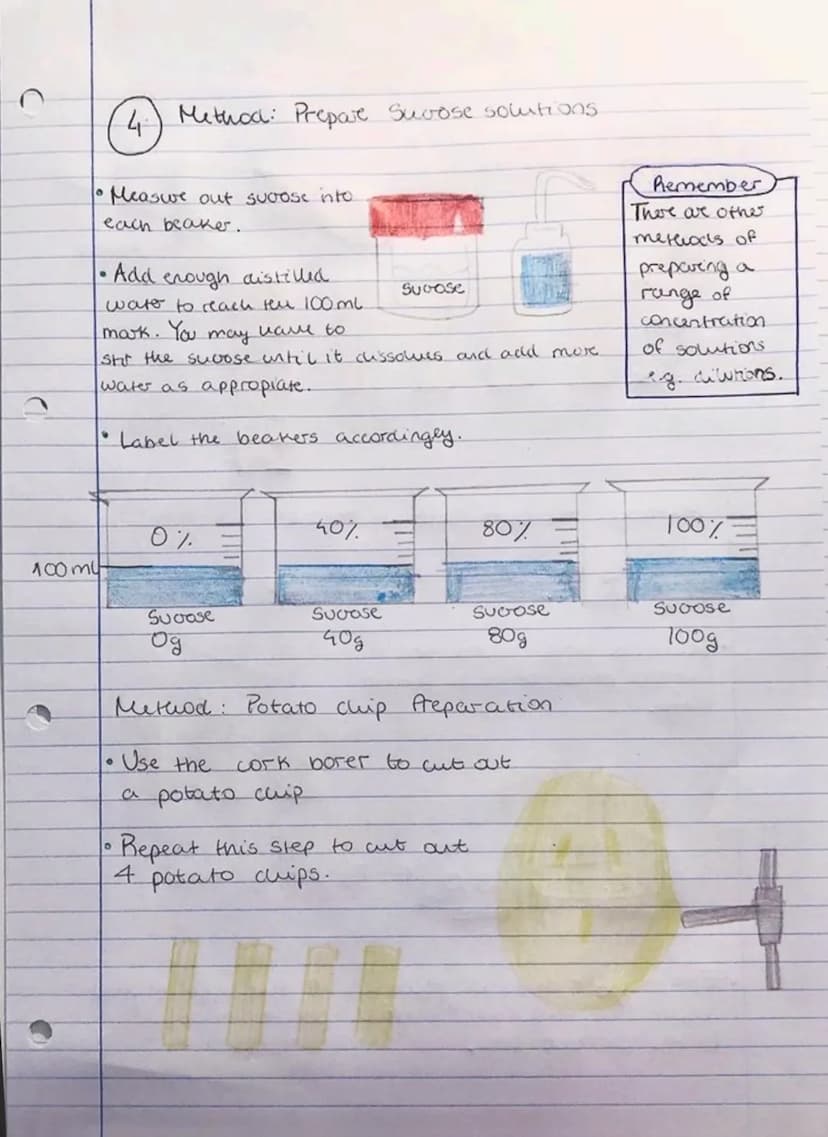 4 Method: Prepare Sucrose solutions
• Measure out sucrose into
each beaker.
• Add enough distilled
water to reach the 100ml
mark. You may have to
stir the sucrose until it dissolves and add more
water as appropiate.
sucrose
Remember
There are other
methods of
preparing a
range of
concentration
of solutions
e.g. dilutions.
• Label the beakers accordingly.
0% 40% 80% 100%
100ml
Sucrose Sucrose Sucrose Sucrose
0g 40g 80g 100g
Method: Potato chip Preparation
• Use the cork borer to cut out
a potato chip
• Repeat this step to cut out
4 potato chips.